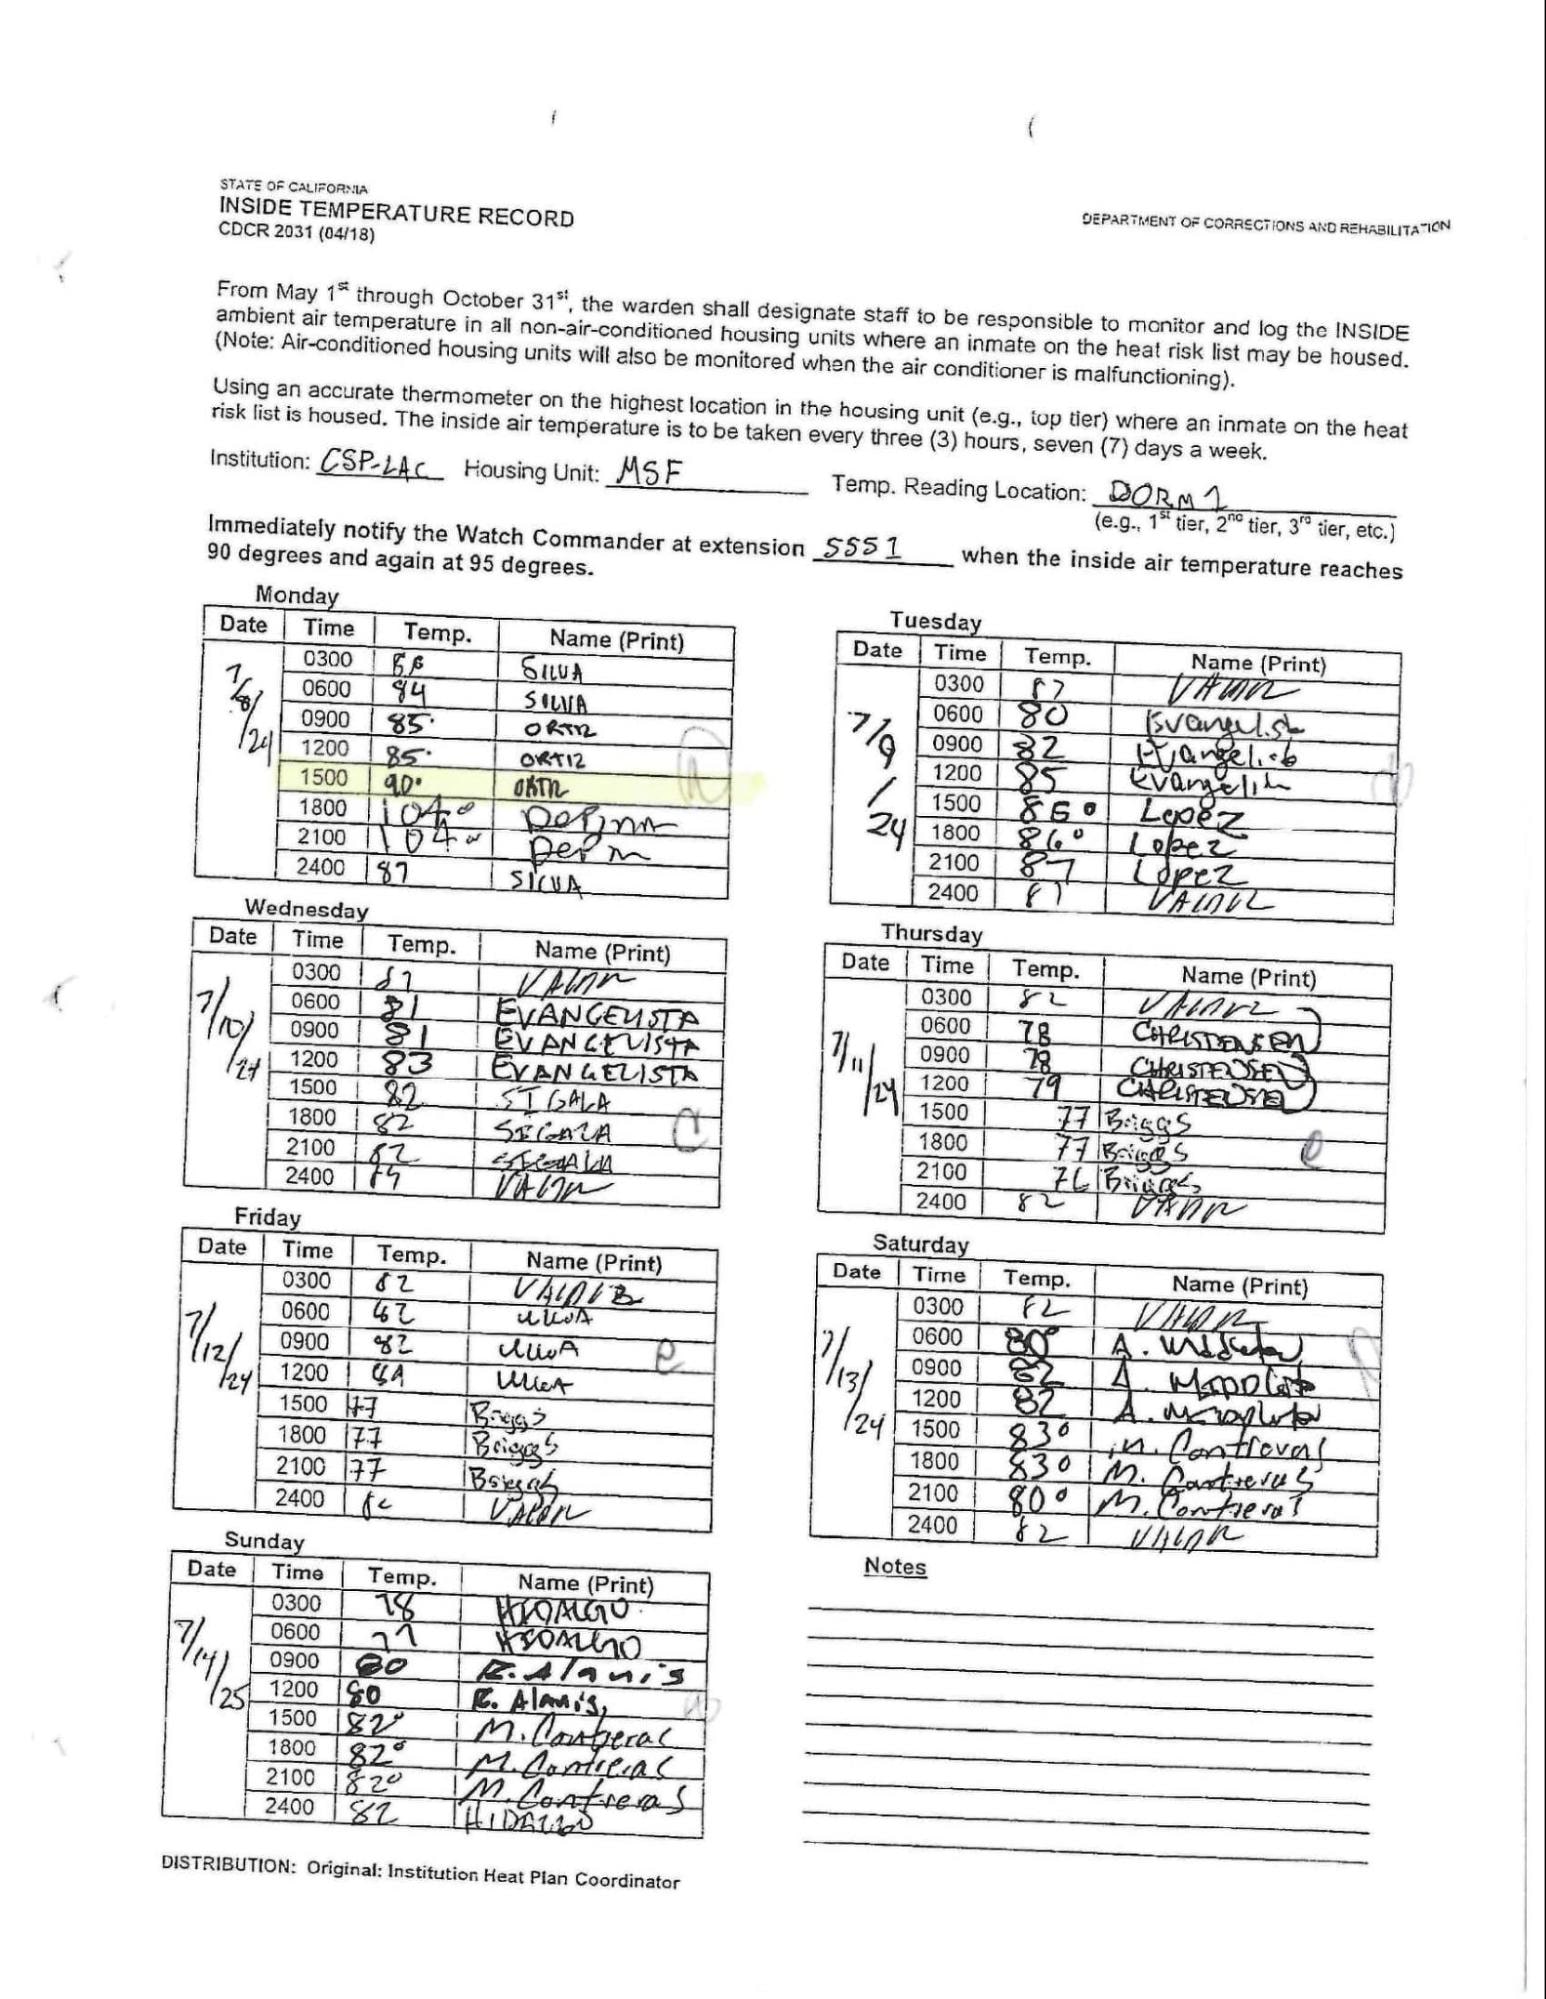 STATE OF CALIFORNIA
INSIDE TEMPERATURE RECORD
CDCR 2031 (04/18)
DEPARTMENT OF CORRECTIONS AND REHABILITATION
From May 1st through October 31st, the warden shall designate staff to be responsible to monitor and log the INSIDE
ambient air temperature in all non-air-conditioned housing units where an inmate on the heat risk list may be housed.
(Note: Air-conditioned housing units will also be monitored when the air conditioner is malfunctioning).
Using an accurate thermometer on the highest location in the housing unit (e.g., top tier) where an inmate on the heat
risk list is housed. The inside air temperature is to be taken every three (3) hours, seven (7) days a week.
Institution: CSP-LAC Housing Unit: MSF Temp. Reading Location: DORM 1
(e.g., 1st tier, 2nd tier, 3rd tier, etc.)
Immediately notify the Watch Commander at extension 5551 when the inside air temperature reaches
90 degrees and again at 95 degrees.
Monday
Date Time Temp. Name (Print)
7/8/24
0300 SILVA
0600 84 SILVA
0900 85° ORTIZ
1200 85° ORTIZ
1500 90° ORTIZ
1800 104°
2100 104°
2400 87 SILVA
Tuesday
Date Time Temp. Name (Print)
7/9/24
0300
0600 80 Evangelista
0900 82 Evangelista
1200 85 Evangelista
1500 86° Lopez
1800 86° Lopez
2100 87 Lopez
2400
Wednesday
Date Time Temp. Name (Print)
7/10/24
0300
0600 81 EVANGELISTA
0900 81 EVANGELISTA
1200 83 EVANGELISTA
1500 82 SIGALA
1800 82 SIGALA
2100 82 SIGALA
2400
Thursday
Date Time Temp. Name (Print)
7/11/24
0300 82
0600 78 CHRISTENSEN
0900 78 CHRISTENSEN
1200 79 CHRISTENSEN
1500 77 Briggs
1800 77 Briggs
2100 76 Briggs
2400 82
Friday
Date Time Temp. Name (Print)
7/12/24
0300 82
0600
0900 82
1200
1500 77 Briggs
1800 77 Briggs
2100 77 Briggs
2400
Saturday
Date Time Temp. Name (Print)
7/13/24
0300 82
0600 80° A.
0900 82 A.
1200 82 A.
1500 83° M. Contreras
1800 83° M. Contreras
2100 80° M. Contreras
2400 82
Sunday
Date Time Temp. Name (Print)
7/14/25
0300 78 HIDALGO
0600 77 HIDALGO
0900 80 R. Alanis
1200 80 R. Alanis
1500 82° M. Contreras
1800 82° M. Contreras
2100 82° M. Contreras
2400 82 HIDALGO
Notes
DISTRIBUTION: Original: Institution Heat Plan Coordinator